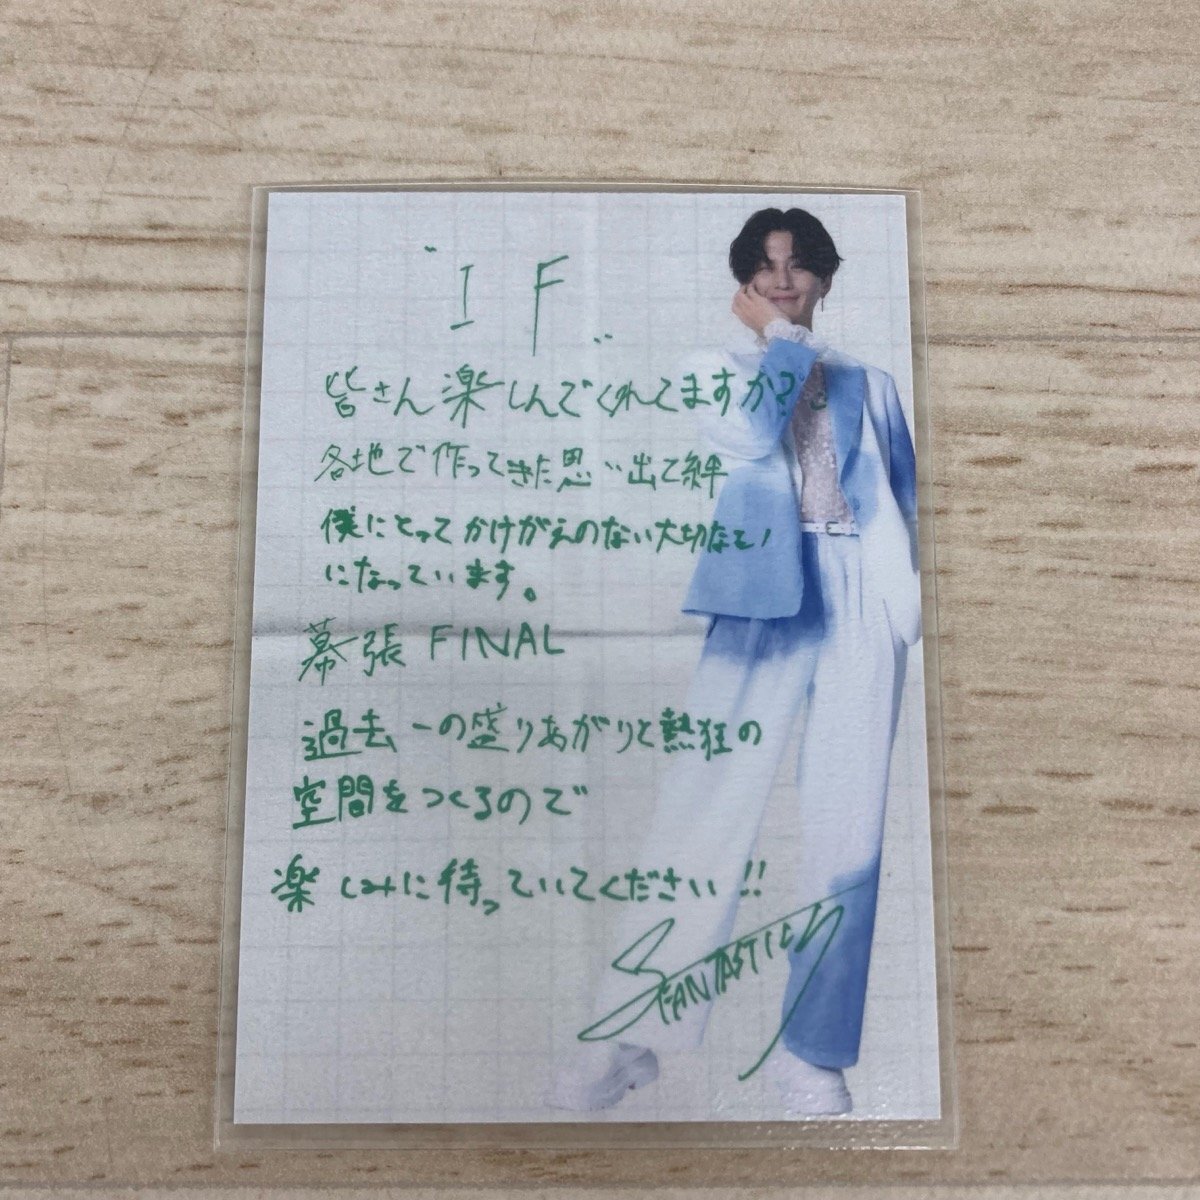 "IF"
皆さん楽しんでくれてますか?
各地で作ってきた思い出で絆
僕にとってかけがえのない大切なモノ
になっています。
幕張 FINAL
過去一の盛りあがりと熱狂の
空間をつくるので
楽しみに待っていてください!!
FANTASTICS